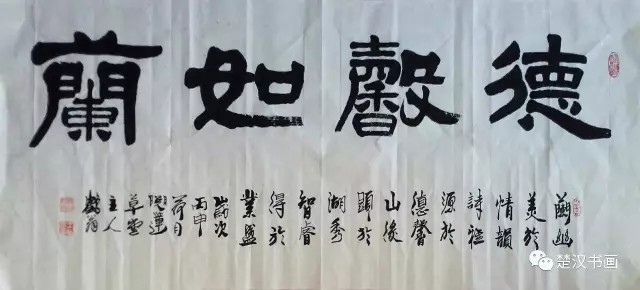 德馨如蘭
蘭幽
美於
情韻
詩經
源於
德馨
山俊
顯於
湖秀
智睿
得於
業盛
歲次
丙申
荷月
蓮
草堂
主人
楚汉书画